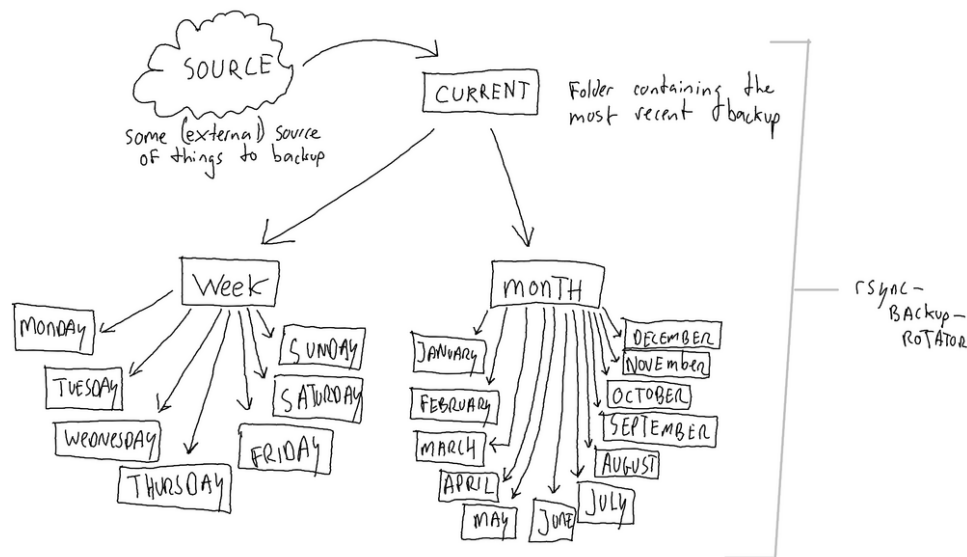 SOURCE
some (external) source
of things to backup
CURRENT
Folder containing the
most recent backup
Week
MONDAY
TUESDAY
WEDNESDAY
THURSDAY
FRIDAY
SATURDAY
SUNDAY
monTH
JANUARY
FEBRUARY
MARCH
APRIL
MAY
JUNE
JULY
AUGUST
SEPTEMBER
OCTOBER
NOVEMBER
DECEMBER
rsync-
BACKUP-
ROTATOR